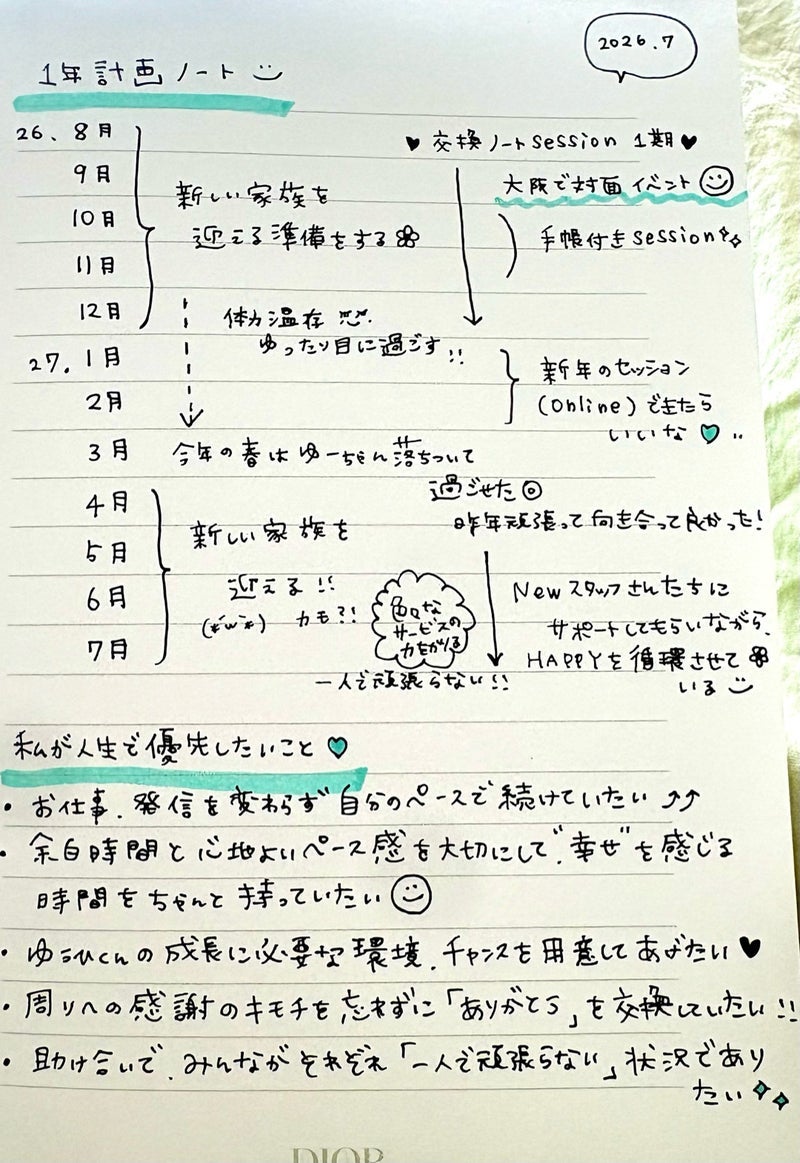 2026.7
1年計画ノート
26. 8月
♥ 交換ノートsession 1期 ♥
9月
大阪で対面イベント
新しい家族を
10月
迎える準備をする
手帳付きsession
11月
12月
体力温存
ゆったり目に過ごす!!
27. 1月
新年のセッション
2月
(online)できたら
いいな
3月
今年の春はゆーちゃん落ちついて
過ごせた◎
4月
昨年頑張って向き合って良かった!
新しい家族を
5月
迎える!!
6月
(*´w`*) カモ?!
色々な
サービスの
力をかりる
Newスタッフさんたちに
サポートしてもらいながら、
7月
HAPPYを循環させて
いる
一人で頑張らない!!
私が人生で優先したいこと
・お仕事、発信を変わらず自分のペースで続けていたい↑↑
・余白時間と心地よいペース感を大切にして"幸せ"を感じる
時間をちゃんと持っていたい
・ゆうひくんの成長に必要な環境、チャンスを用意してあげたい♥
・周りへの感謝のキモチを忘れずに「ありがとう」を交換していたい!!
・助け合いで、みんながそれぞれ「一人で頑張らない」状況であり
たい
DIOR